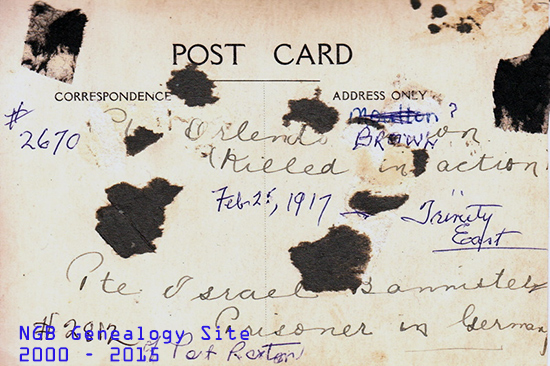 POST CARD
CORRESPONDENCE
ADDRESS ONLY
# 2670
Orlendo
Moulton ?
BROWN
(Killed in action
Feb 25, 1917 — Trinity East
Pte Israel Bannister
#2812
Prisoner in Germany
NGB Genealogy Site
2000 - 2015